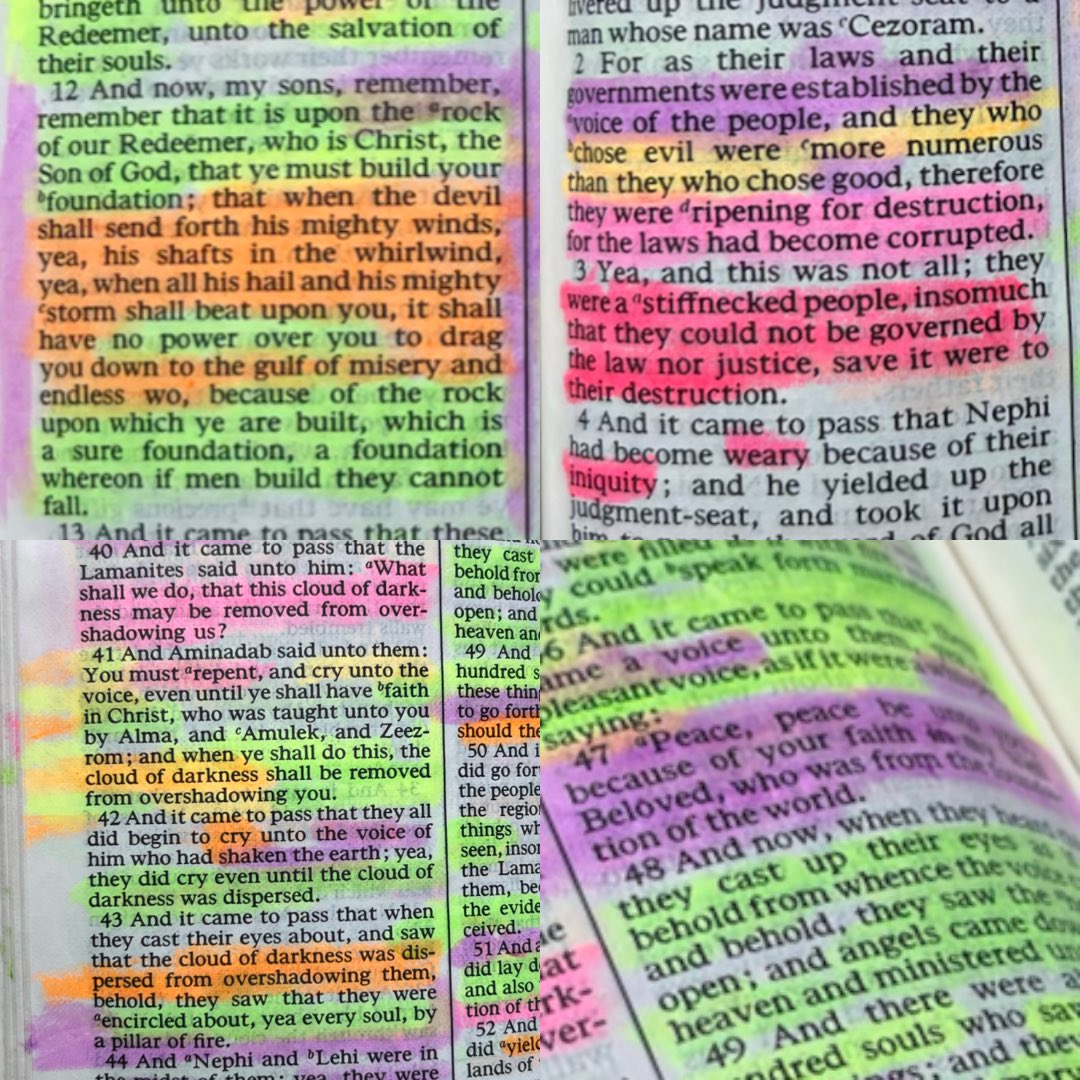 bringeth unto the power of the
Redeemer, unto the salvation of
their souls.
12 And now, my sons, remember,
remember that it is upon the ᵃrock
of our Redeemer, who is Christ, the
Son of God, that ye must build your
ᵇfoundation; that when the devil
shall send forth his mighty winds,
yea, his shafts in the whirlwind,
yea, when all his hail and his mighty
ᶜstorm shall beat upon you, it shall
have no power over you to drag
you down to the gulf of misery and
endless wo, because of the rock
upon which ye are built, which is
a sure foundation, a foundation
whereon if men build they cannot
fall.
13 And it came to pass that these
up the judgment-seat to a
man whose name was ᶜCezoram.
2 For as their laws and their
governments were established by the
ᵃvoice of the people, and they who
ᵇchose evil were ᶜmore numerous
than they who chose good, therefore
they were ᵈripening for destruction,
for the laws had become corrupted.
3 Yea, and this was not all; they
were a ᵃstiffnecked people, insomuch
that they could not be governed by
the law nor justice, save it were to
their destruction.
4 And it came to pass that Nephi
had become weary because of their
iniquity; and he yielded up the
judgment-seat, and took it upon
of God all
40 And it came to pass that the
Lamanites said unto him: ᵃWhat
shall we do, that this cloud of dark-
ness may be removed from over-
shadowing us?
41 And Aminadab said unto them:
You must ᵃrepent, and cry unto the
voice, even until ye shall have ᵇfaith
in Christ, who was taught unto you
by Alma, and ᶜAmulek, and Zeez-
rom; and when ye shall do this, the
cloud of darkness shall be removed
from overshadowing you.
42 And it came to pass that they all
did begin to cry unto the voice of
him who had shaken the earth; yea,
they did cry even until the cloud of
darkness was dispersed.
43 And it came to pass that when
they cast their eyes about, and saw
that the cloud of darkness was dis-
persed from overshadowing them,
behold, they saw that they were
ᵃencircled about, yea every soul, by
a pillar of fire.
44 And ᵃNephi and ᵇLehi were in
the midst of them; yea, they were
they cast
behold
and
open; and
heaven
49 And
hundred
these
to go
should
50 And
did go
the people
the
things
seen,
the
them,
the
ceived.
51 And
did lay
and also
tion of
52 And
did
lands of
were filled
could ᵇspeak forth
46 And it came to pass
a voice unto
pleasant voice, as if it were
saying:
47 ᵃPeace, peace be
because of your faith in
Beloved, who was from the
tion of the world.
48 And now, when they
they cast up their eyes
behold from whence the voice
and behold, they saw the
open; and angels came
heaven and ministered
49 And there were
souls who
and they